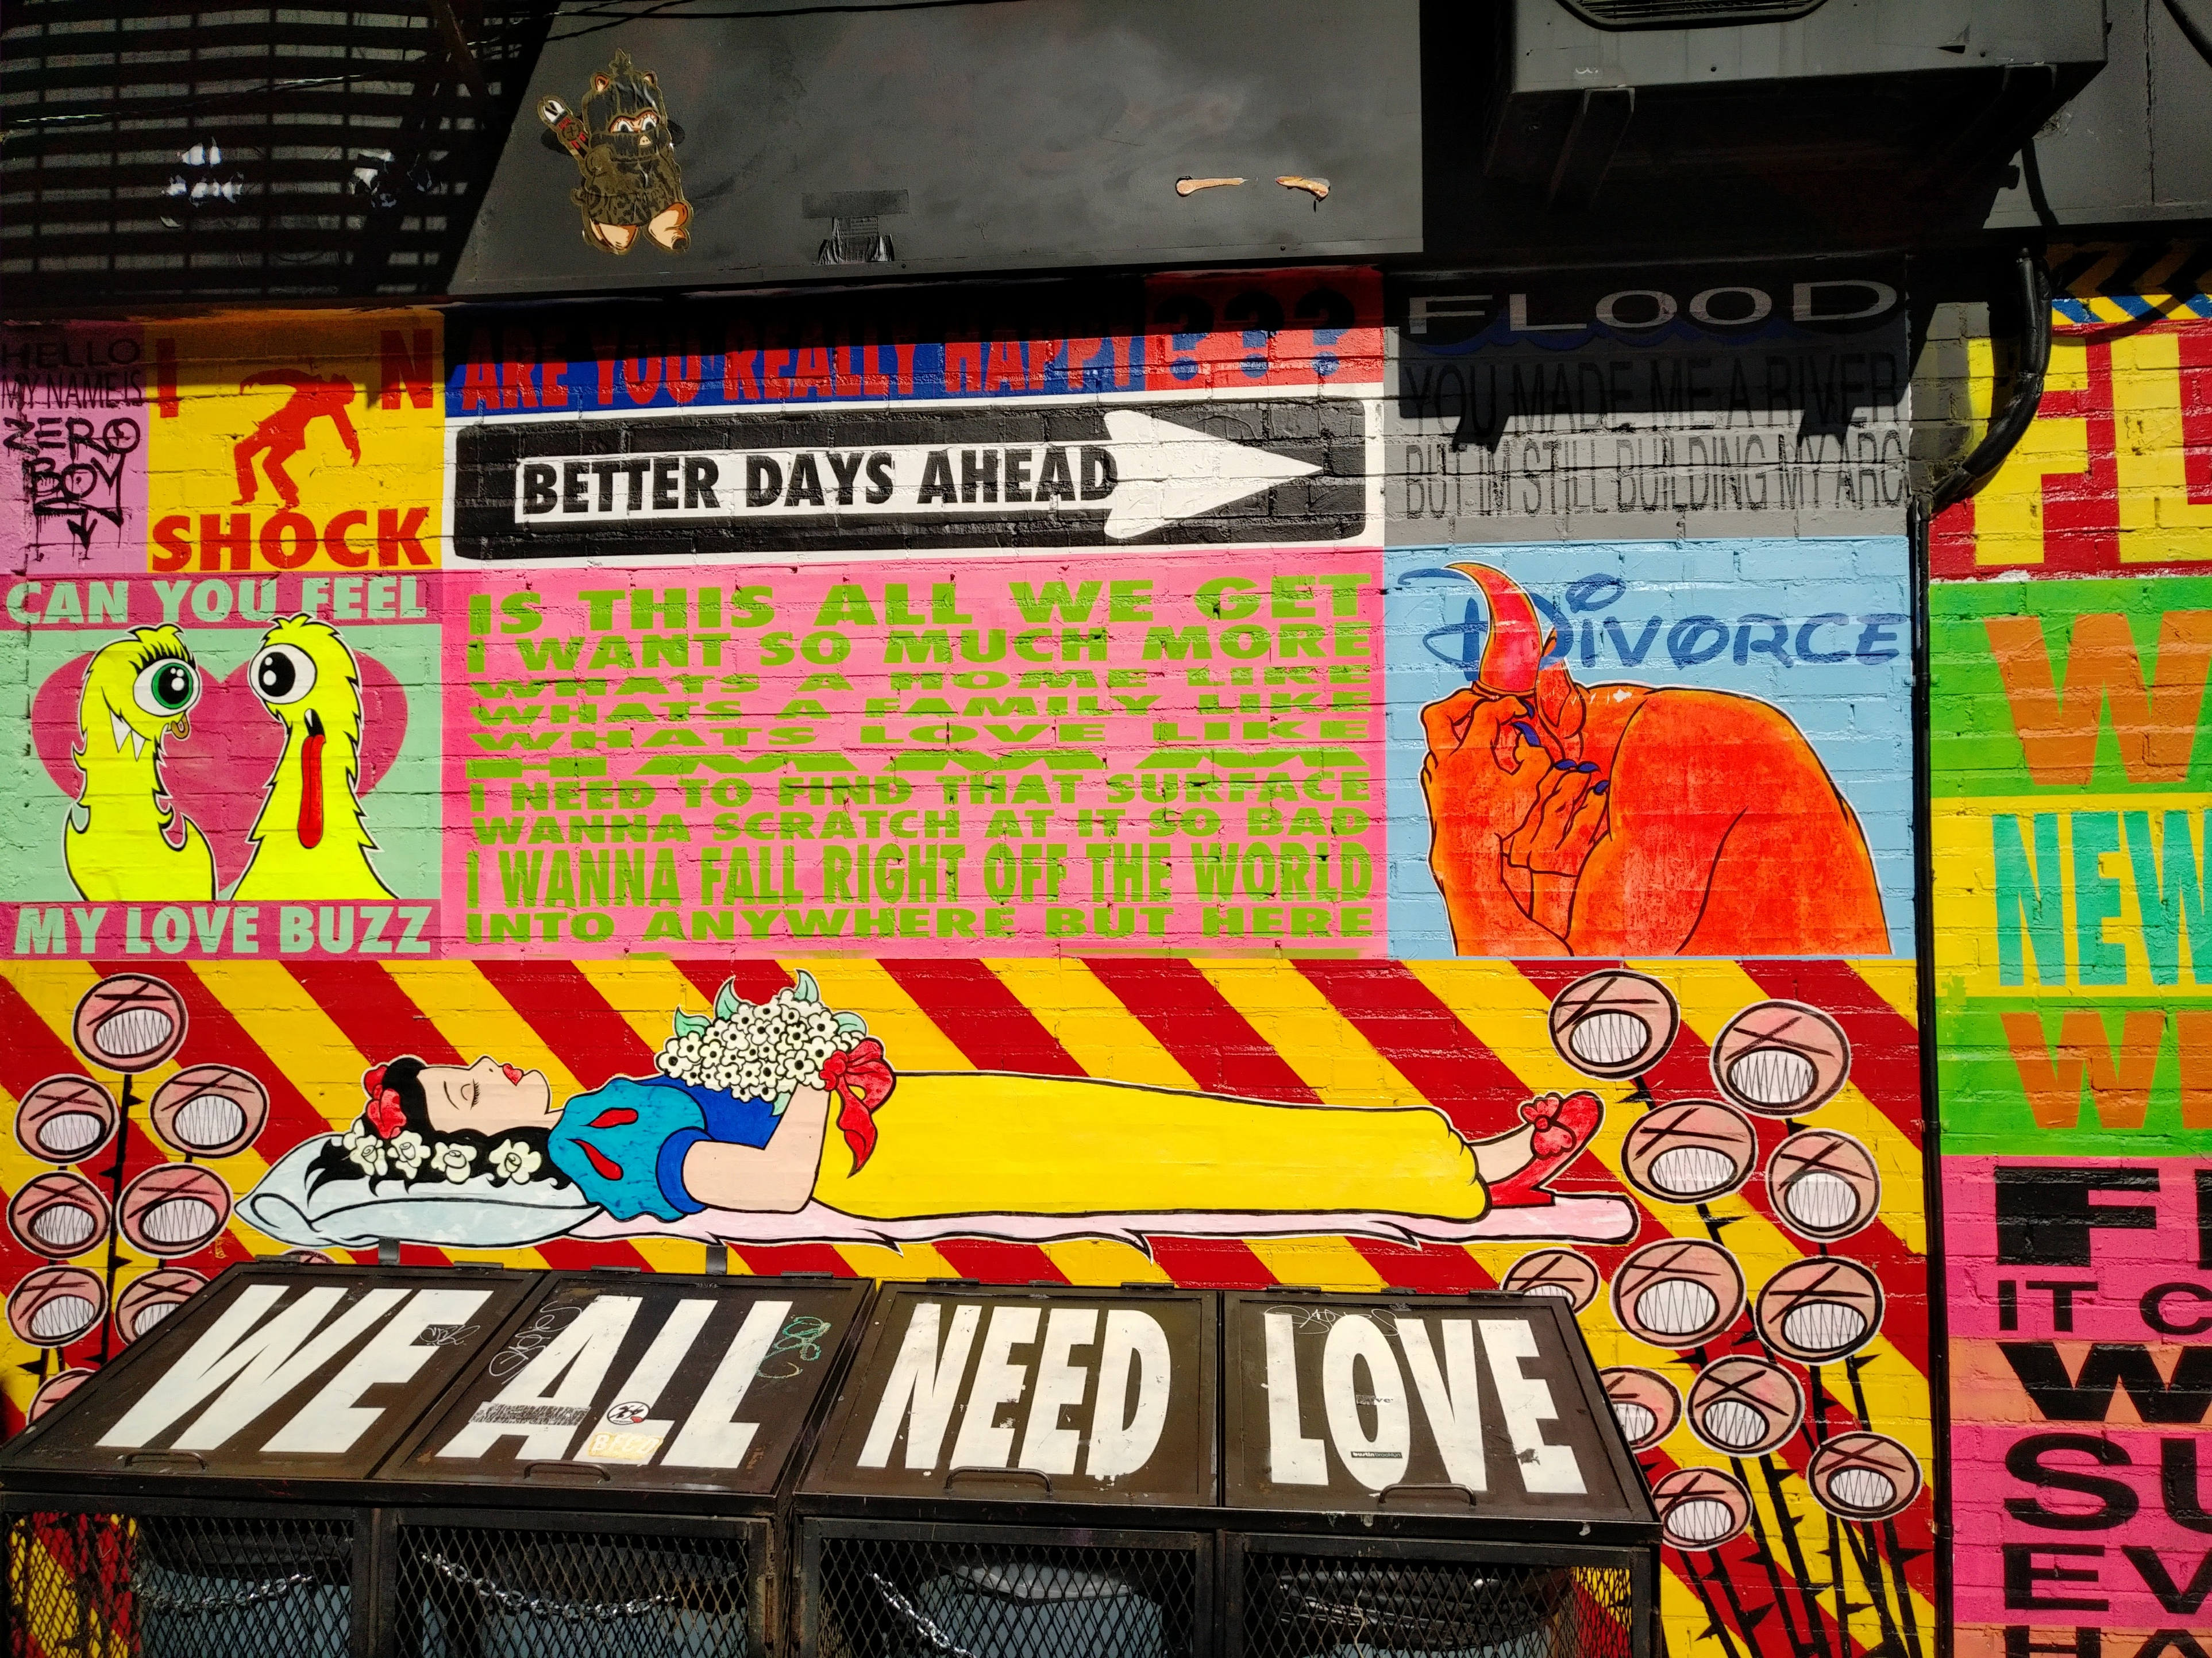 HELLO
MY NAME IS
ZERO
BOY
I N
SHOCK
CAN YOU FEEL
MY LOVE BUZZ
ARE YOU REALLY HAPPY ???
BETTER DAYS AHEAD
IS THIS ALL WE GET
I WANT SO MUCH MORE
WHATS A HOME LIKE
WHATS A FAMILY LIKE
WHATS LOVE LIKE
I NEED TO FIND THAT SURFACE
WANNA SCRATCH AT IT SO BAD
I WANNA FALL RIGHT OFF THE WORLD
INTO ANYWHERE BUT HERE
FLOOD
YOU MADE ME A RIVER
BUT IM STILL BUILDING MY ARC
DIVORCE
FL
W
NEW
WI
F
IT C
W
SU
EV
HA
WE ALL NEED LOVE